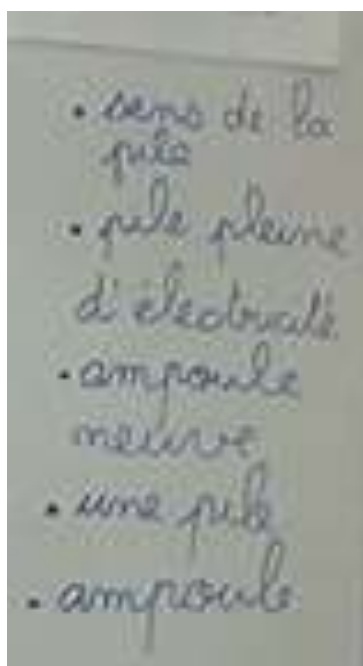 • sens de la
pile
• pile pleine
d'électricité
• ampoule
neuve
• une pile
• ampoule